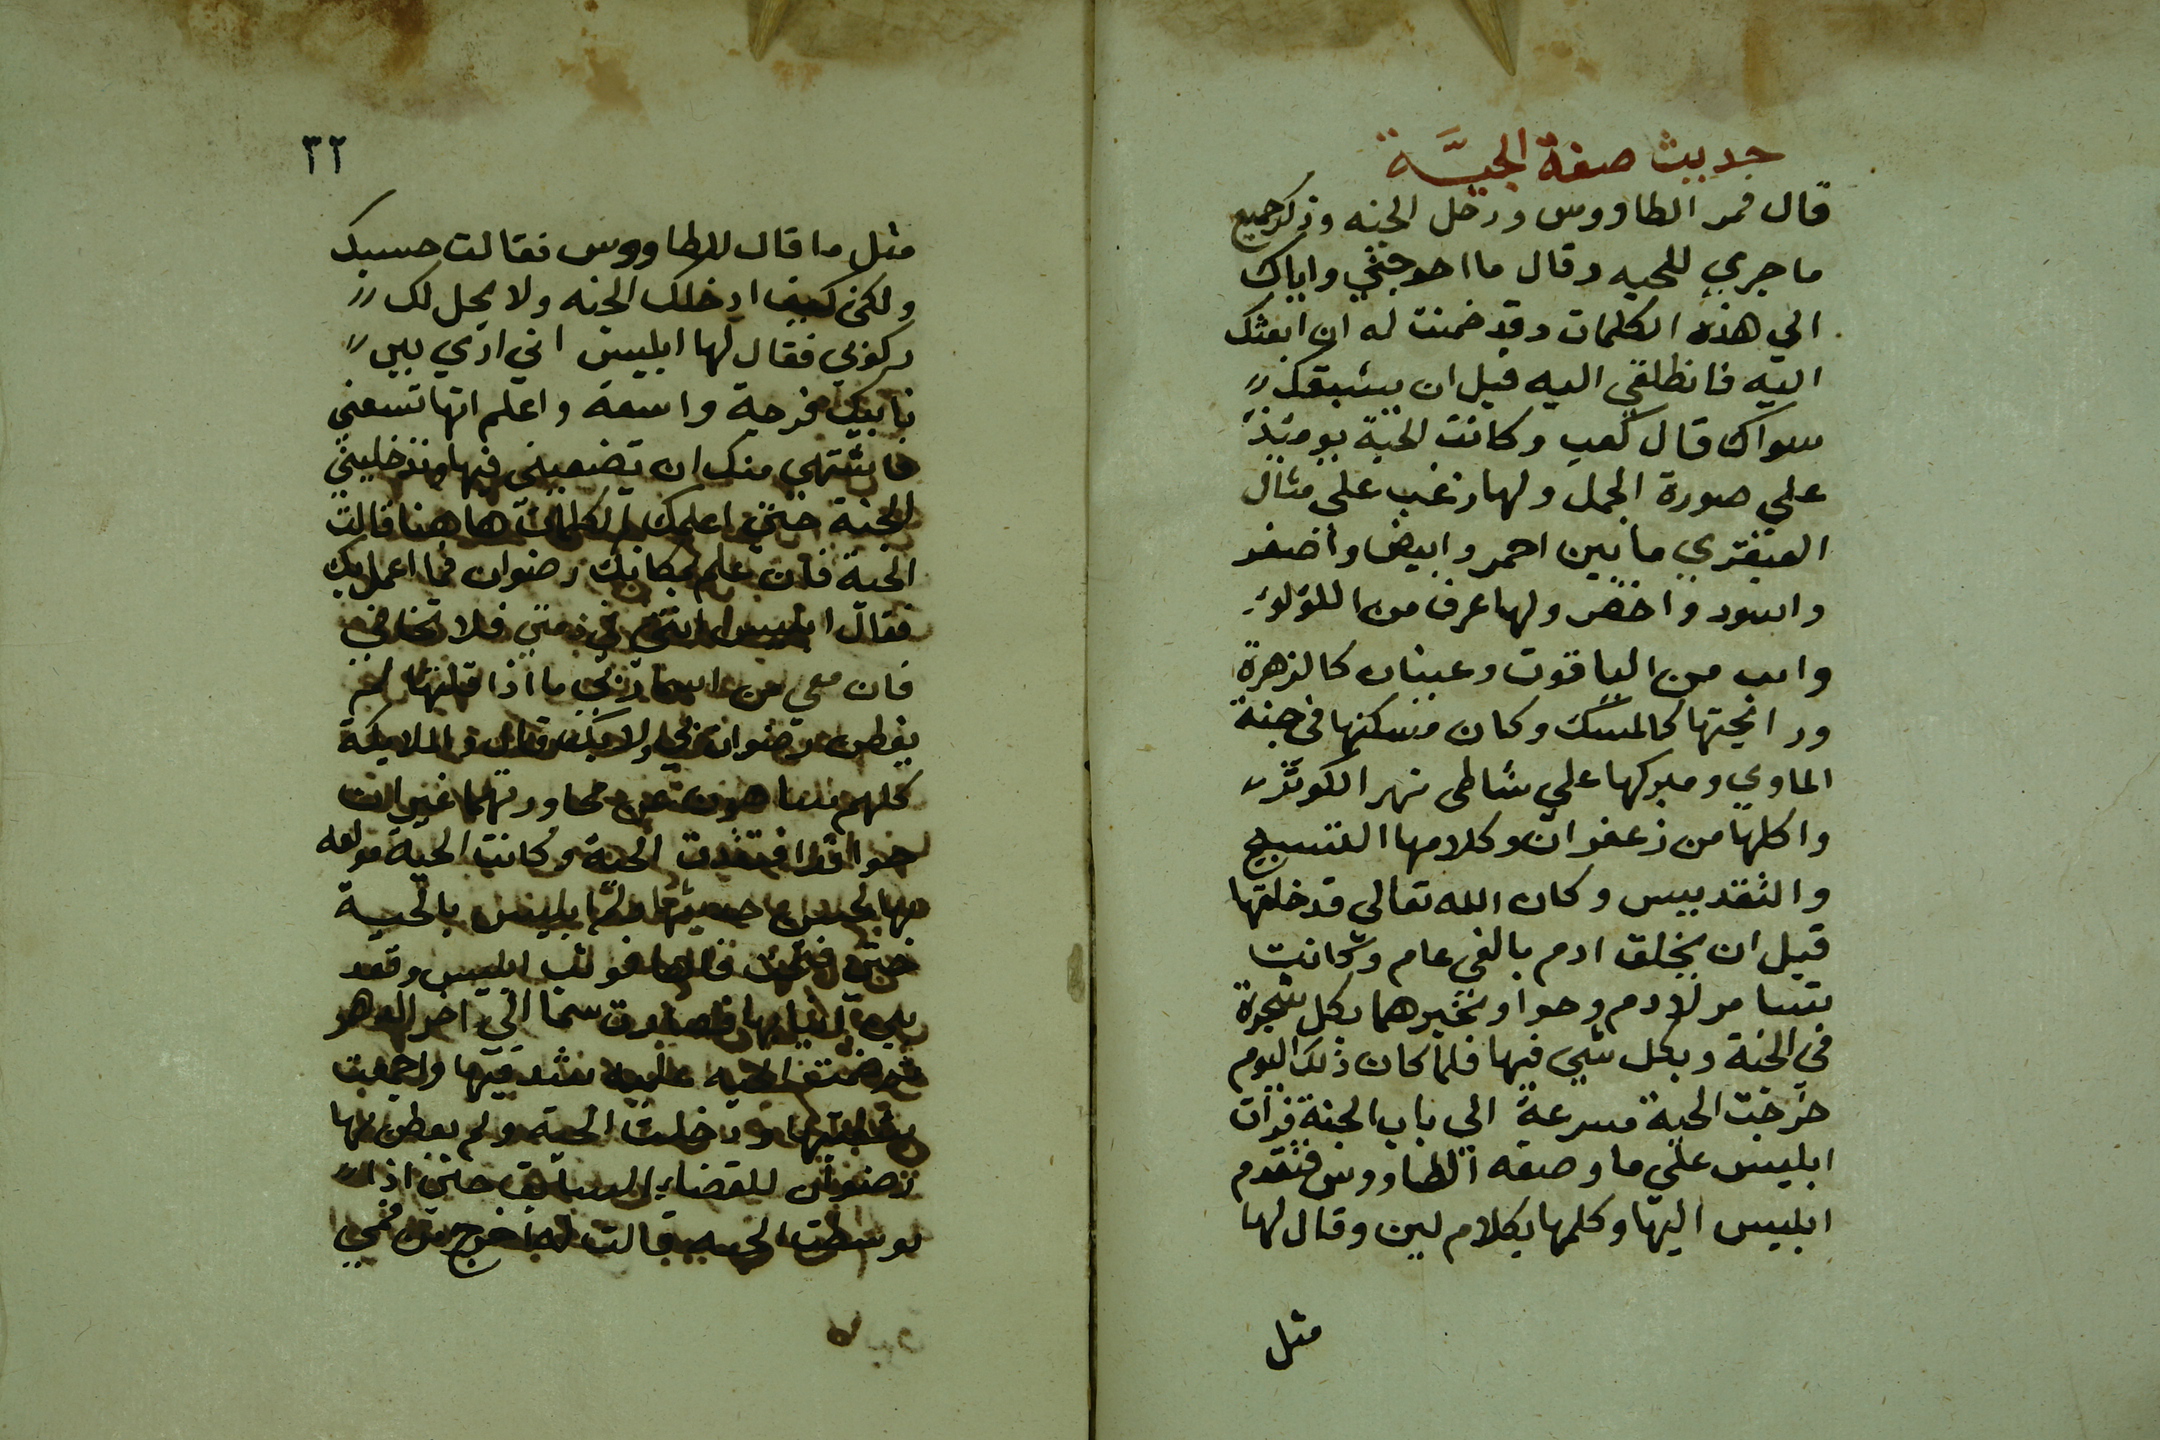 حديث صفة الحيَّة
قال فمر الطاووس ودخل الجنه وذكر جميع
ما جري للحيه وقال ما احوجني واياك
الي هذه الكلمات وقد ضمنت له ان ابعثك
اليه فانطلقي اليه قبل ان يسبقك
سواك قال كعب وكانت الحية يومئذ
علي صورة الجمل ولها زغب علي مثال
العبقري ما بين احمر وابيض واصفر
واسود واخضر ولها عرف من اللؤلؤ
من الياقوت وعينان كالزهرة
ورائحيتها كالمسك وكان مسكنها في جنة
الماوي ومبركها علي شاطي نهر الكوثر
واكلها من زعفران وكلامها التسبيح
والتقديس وكان الله تعالي قد خلقها
قبل ان يخلق ادم بالفي عام وكانت
لادم وحوا وتخبرهما بكل شجرة
في الجنة وبكل شي فيها فلما كان ذلك اليوم
خرجت الحية مسرعة الي باب الجنة فرات
ابليس علي ما وصفه الطاووس فتقدم
ابليس اليها وكلمها بكلام لين وقال لها
مثل
٣٢
مثل ما قال للطاووس فقالت حسبك
ولكن كيف ادخلك الجنه ولا يحل لك
ركوبي فقال لها ابليس اني اري بين
نابيك فرجة واسعة واعلم انها تسعني
فاشتهي منك ان تضعيني فيها وتدخليني
الجنة حتي اعلمك الكلمات هاهنا قالت
الحية فان علم بمكانك رضوان فما اعمل بك
فقال ابليس انتي في ذمتي فلا تخافي
فان معي من اسما ربي ما اذا قلتها لم
يفطن رضوان بي ولا بك قال والملايكة
كلهم ساهون عن محاورتهما غير ان
حوا قد افتقدت الحية وكانت الحية مولعه
بها ابليس بالحية
حتي فتحت فاها فوثب ابليس وقعد
بين انيابها فصارت سما الي اخر الدهر
الحية
ودخلت الحية ولم يفطن بها
رضوان للقضاء السابق حتي اذا
توسطت الجنه قالت له اخرج من فمي